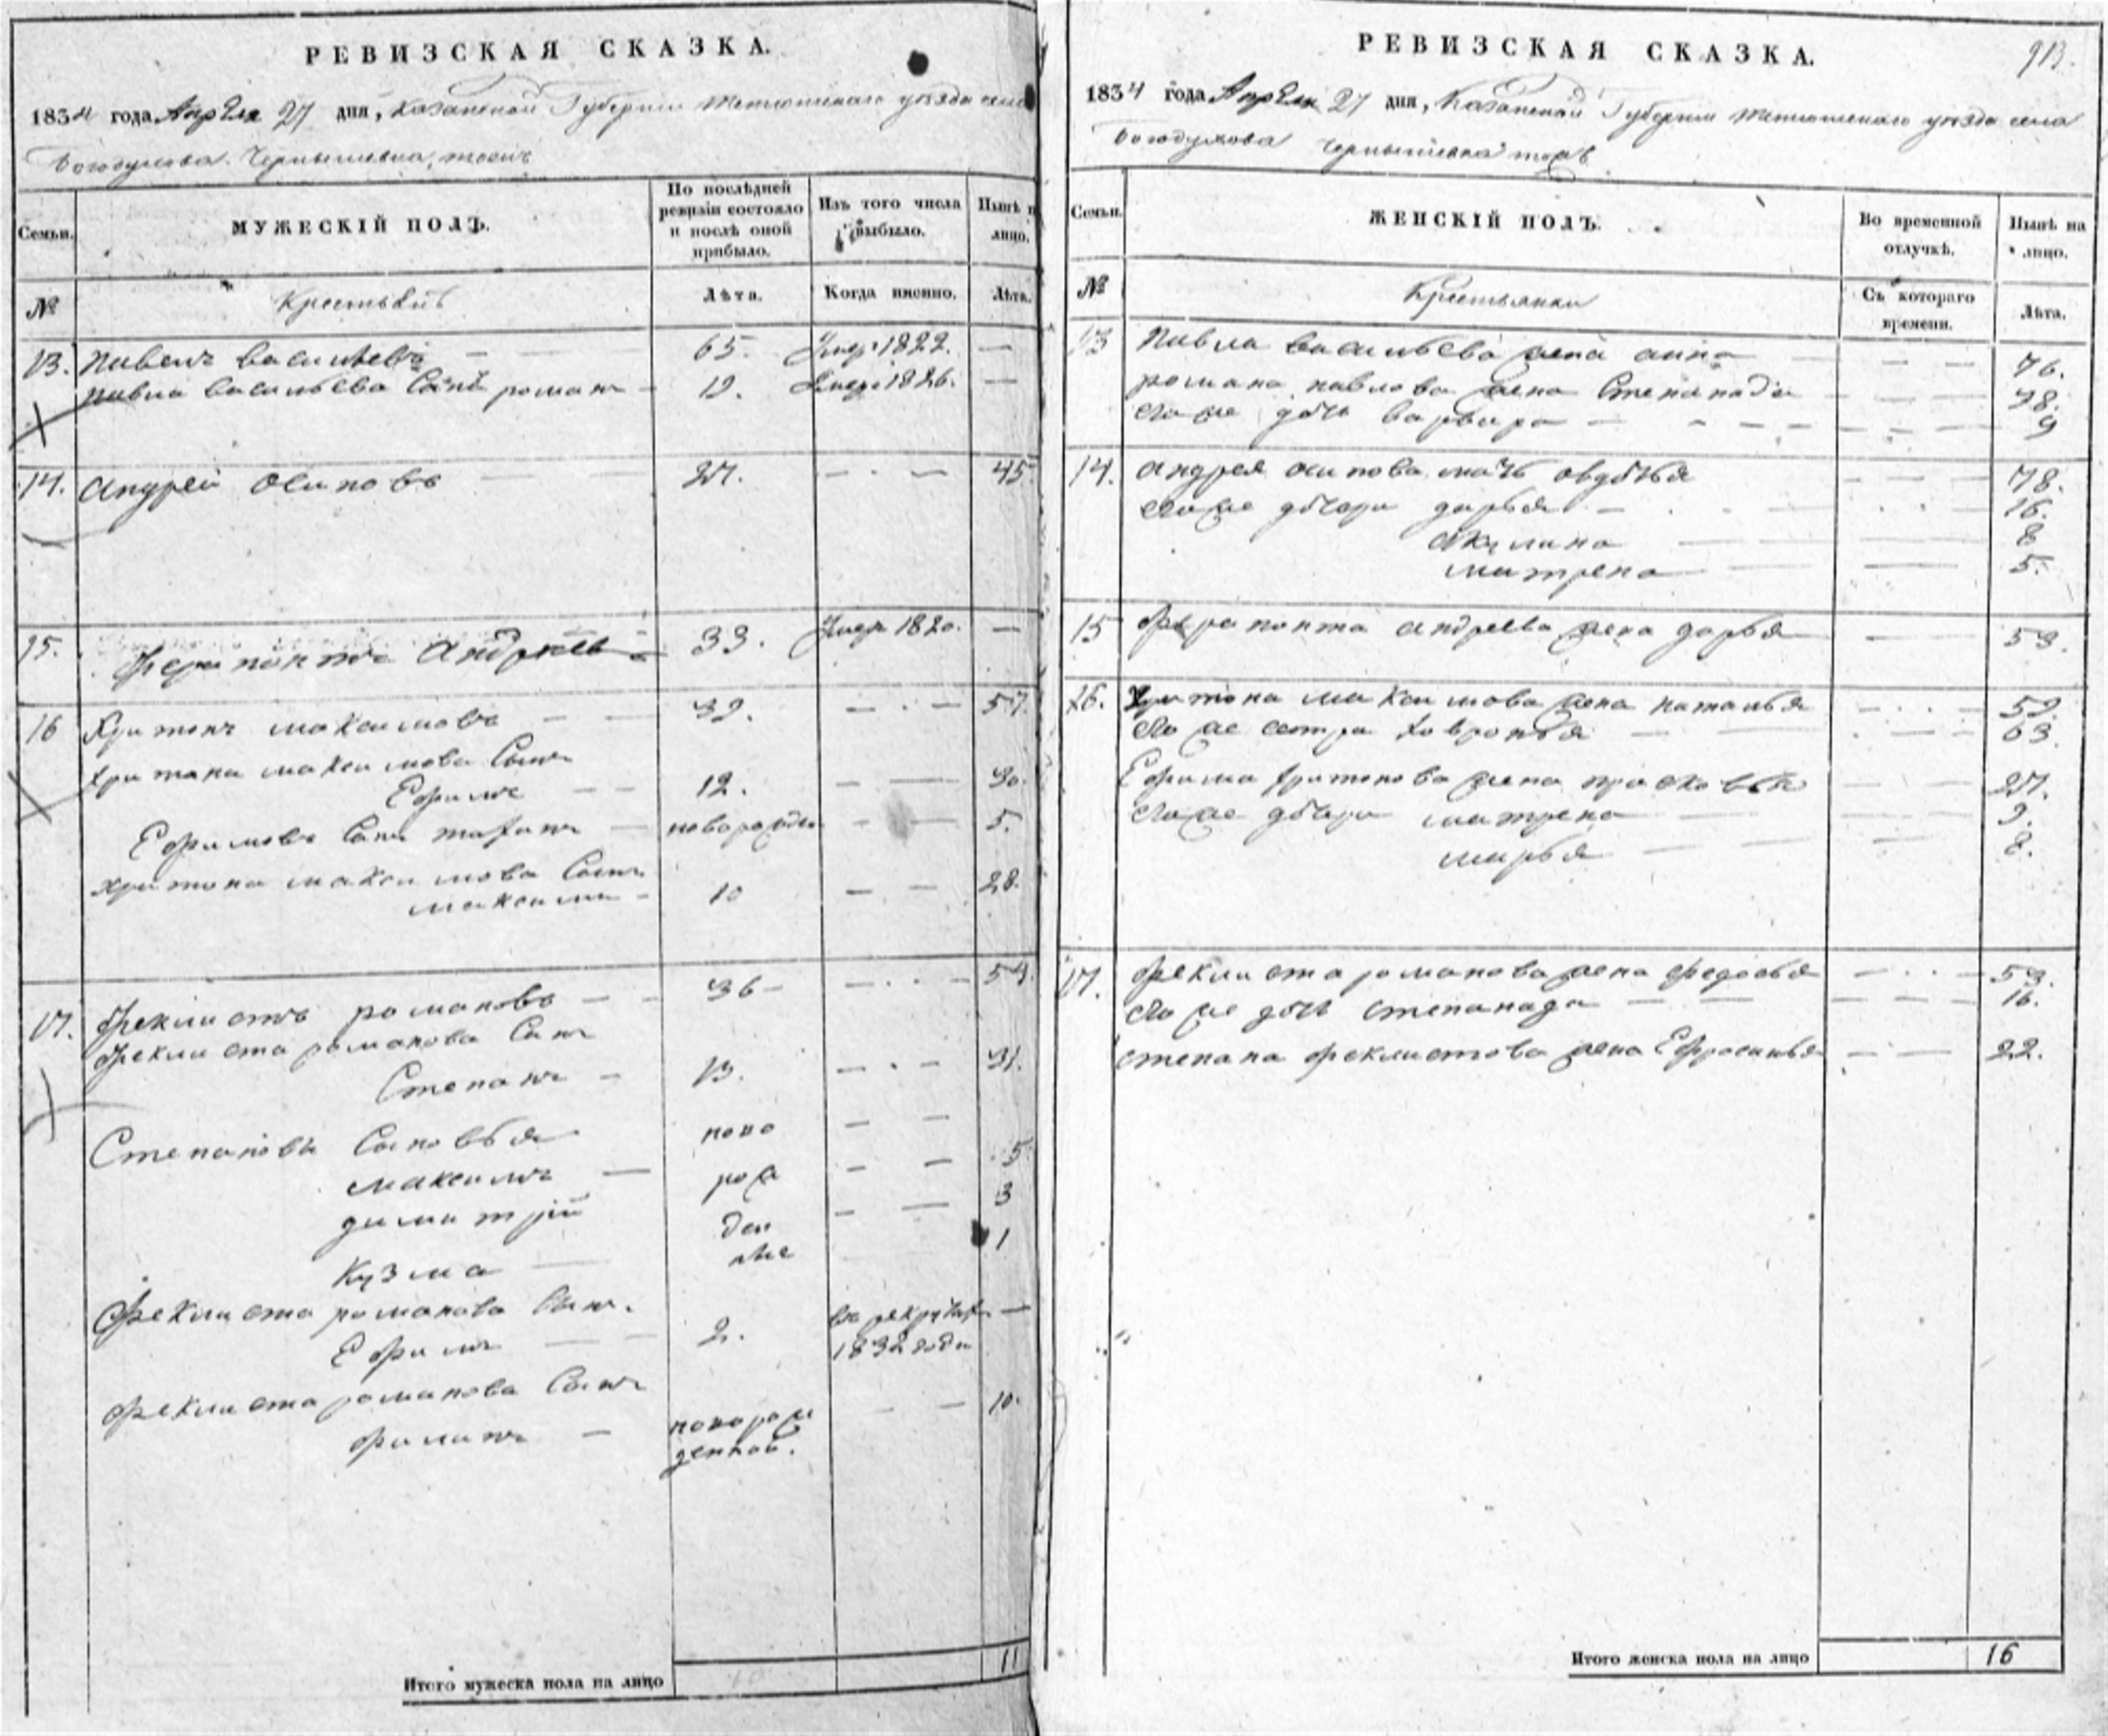 РЕВИЗСКАЯ СКАЗКА.
1834 года Апреля 27 дня, Казанской Губернии Тетюшскаго уезда села
Богодухова Чернышевка тожъ
Семьи.
МУЖЕСКІЙ ПОЛЪ.
По послѣдней ревизіи состояло и послѣ оной прибыло.
Изъ того числа выбыло.
Нынѣ на лицо.
№
Крестьянъ
Лѣта.
Когда именно.
Лѣта.
13. Павелъ васильевъ — 65. Умер 1822. —
Павла васильева Сынъ романъ — 19. Умер 1826. —
14. андрей осиповъ 27. — · — 45
15. Ферапонтъ андреевъ 33. Умер 1820. —
16 Харитонъ максимовъ — — 39. — · — 57.
харитона максимова Сынъ
Ефимъ — — 12. — — 30.
Ефимовъ Сынъ — новорожден — — 5.
харитона максимова Сынъ
максимъ — 10 — — 28.
17. феклистъ романовъ — — 36 — — · · — 54.
феклиста романова Сынъ
Степанъ — 13. — · — 31.
Степановы Сыновья ново — —
максимъ — рож — — 5
димитрій ден — — 3
Кузма — ные 1
Феклиста романова Сынъ.
Ефимъ — 2. въ рекруты —
1832 года
феклиста романова Сынъ
филипъ — новорож — — 10.
денной.
Итого мужеска пола на лицо 11
РЕВИЗСКАЯ СКАЗКА.
913.
1834 года Апреля 27 дня, Казанской Губернии Тетюшскаго уезда села
Богодухова Чернышевка тожъ
Семьи.
ЖЕНСКІЙ ПОЛЪ.
Во временной отлучкѣ.
Нынѣ на лицо.
№
Крестьянки
Съ котораго времени.
Лѣта.
13 Павла васильева жена анна — — 76.
романа павлова жена Степанида — — 38.
Его же дочь варвара — — — — 9
14. андрея осипова мать овдотья — — 78.
Его же дочери дарья — 16.
Акулина — — 8
матрена — — 5.
15 Ферапонта андреева жена дарья — — 53.
16. Харитона максимова жена наталья — · — 59.
Его же сестра ховронья — — 63.
Ефима харитонова жена прасковья — — 27.
Его же дочери матрена — — 9.
марья — — 8.
17. феклиста романова жена федосья — · · — 53.
Его же дочь степанида — — 16.
степана феклистова жена Ефросинья — · — 22.
Итого женска пола на лицо 16